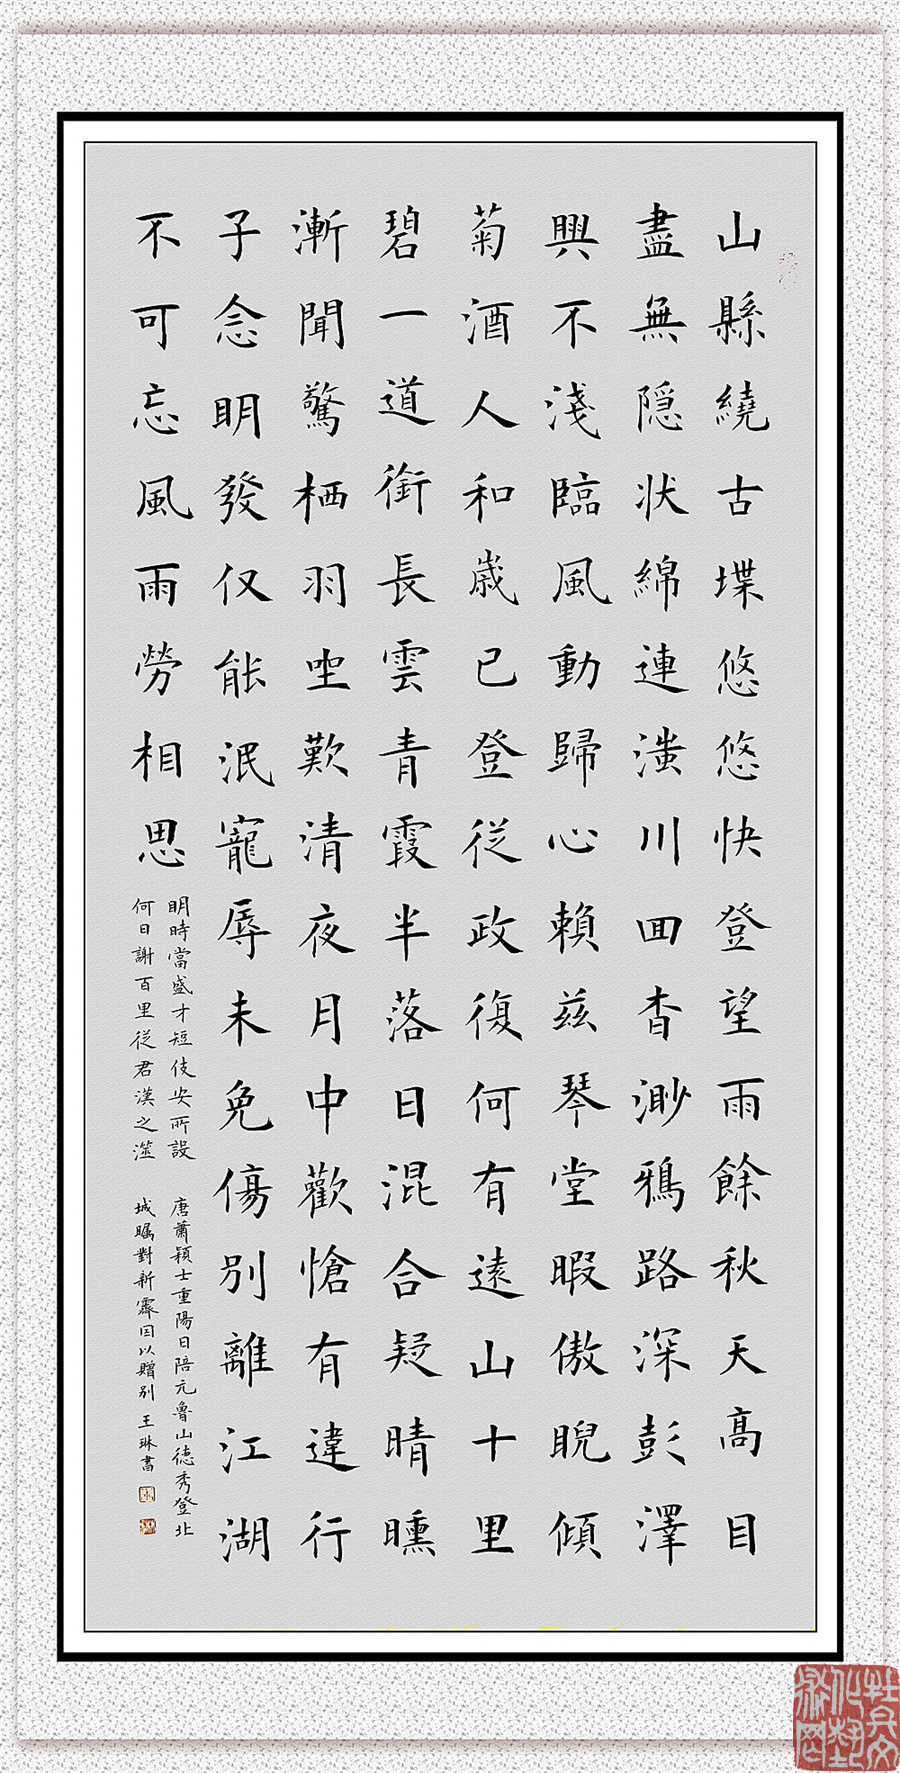 山縣繞古堞悠悠快登望雨餘秋天高目
盡無隠状綿連滍川回杳渺鴉路深彭澤
興不淺臨風動歸心賴兹琴堂暇傲睨傾
菊酒人和歲已登從政復何有遠山十里
碧一道銜長雲青霞半落日混合疑晴曛
漸聞驚栖羽坐歎清夜月中歡愴有違行
子念明發仅能泯寵辱未免傷別離江湖
不可忘風雨勞相思
明時當盛才短伎安所設
何日謝百里從君漢之澨
唐蕭穎士重陽日陪元魯山德秀登北
城矚對新霽因以贈別 王琳書